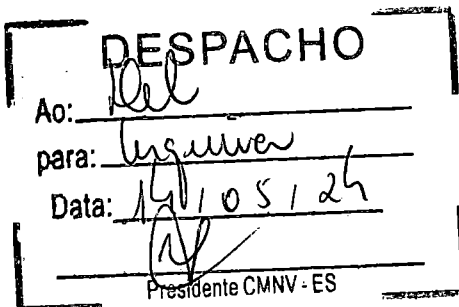 DESPACHO
Ao:
para: Arquivar
Data: 14 / 05 / 24
Presidente CMNV - ES